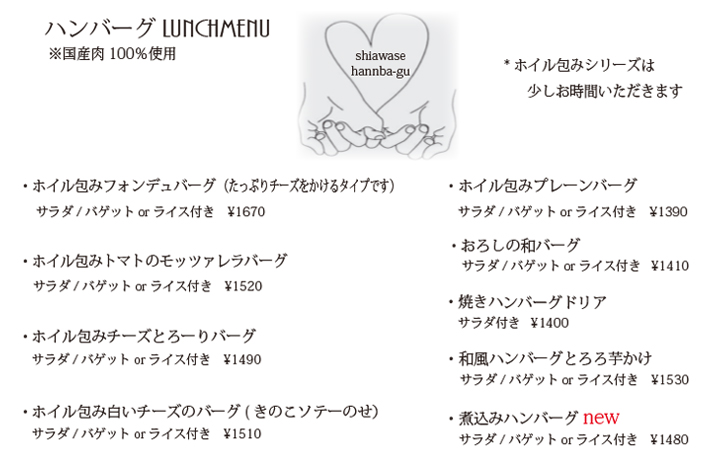 ハンバーグ LUNCHMENU
※国産肉 100%使用
shiawase
hannba-gu
* ホイル包みシリーズは
少しお時間いただきます
・ホイル包みフォンデュバーグ（たっぷりチーズをかけるタイプです）
サラダ / バゲット or ライス付き ¥1670
・ホイル包みトマトのモッツァレラバーグ
サラダ / バゲット or ライス付き ¥1520
・ホイル包みチーズとろーりバーグ
サラダ / バゲット or ライス付き ¥1490
・ホイル包み白いチーズのバーグ ( きのこソテーのせ）
サラダ / バゲット or ライス付き ¥1510
・ホイル包みプレーンバーグ
サラダ / バゲット or ライス付き ¥1390
・おろしの和バーグ
サラダ / バゲット or ライス付き ¥1410
・焼きハンバーグドリア
サラダ付き ¥1400
・和風ハンバーグとろろ芋かけ
サラダ / バゲット or ライス付き ¥1530
・煮込みハンバーグ new
サラダ / バゲット or ライス付き ¥1480